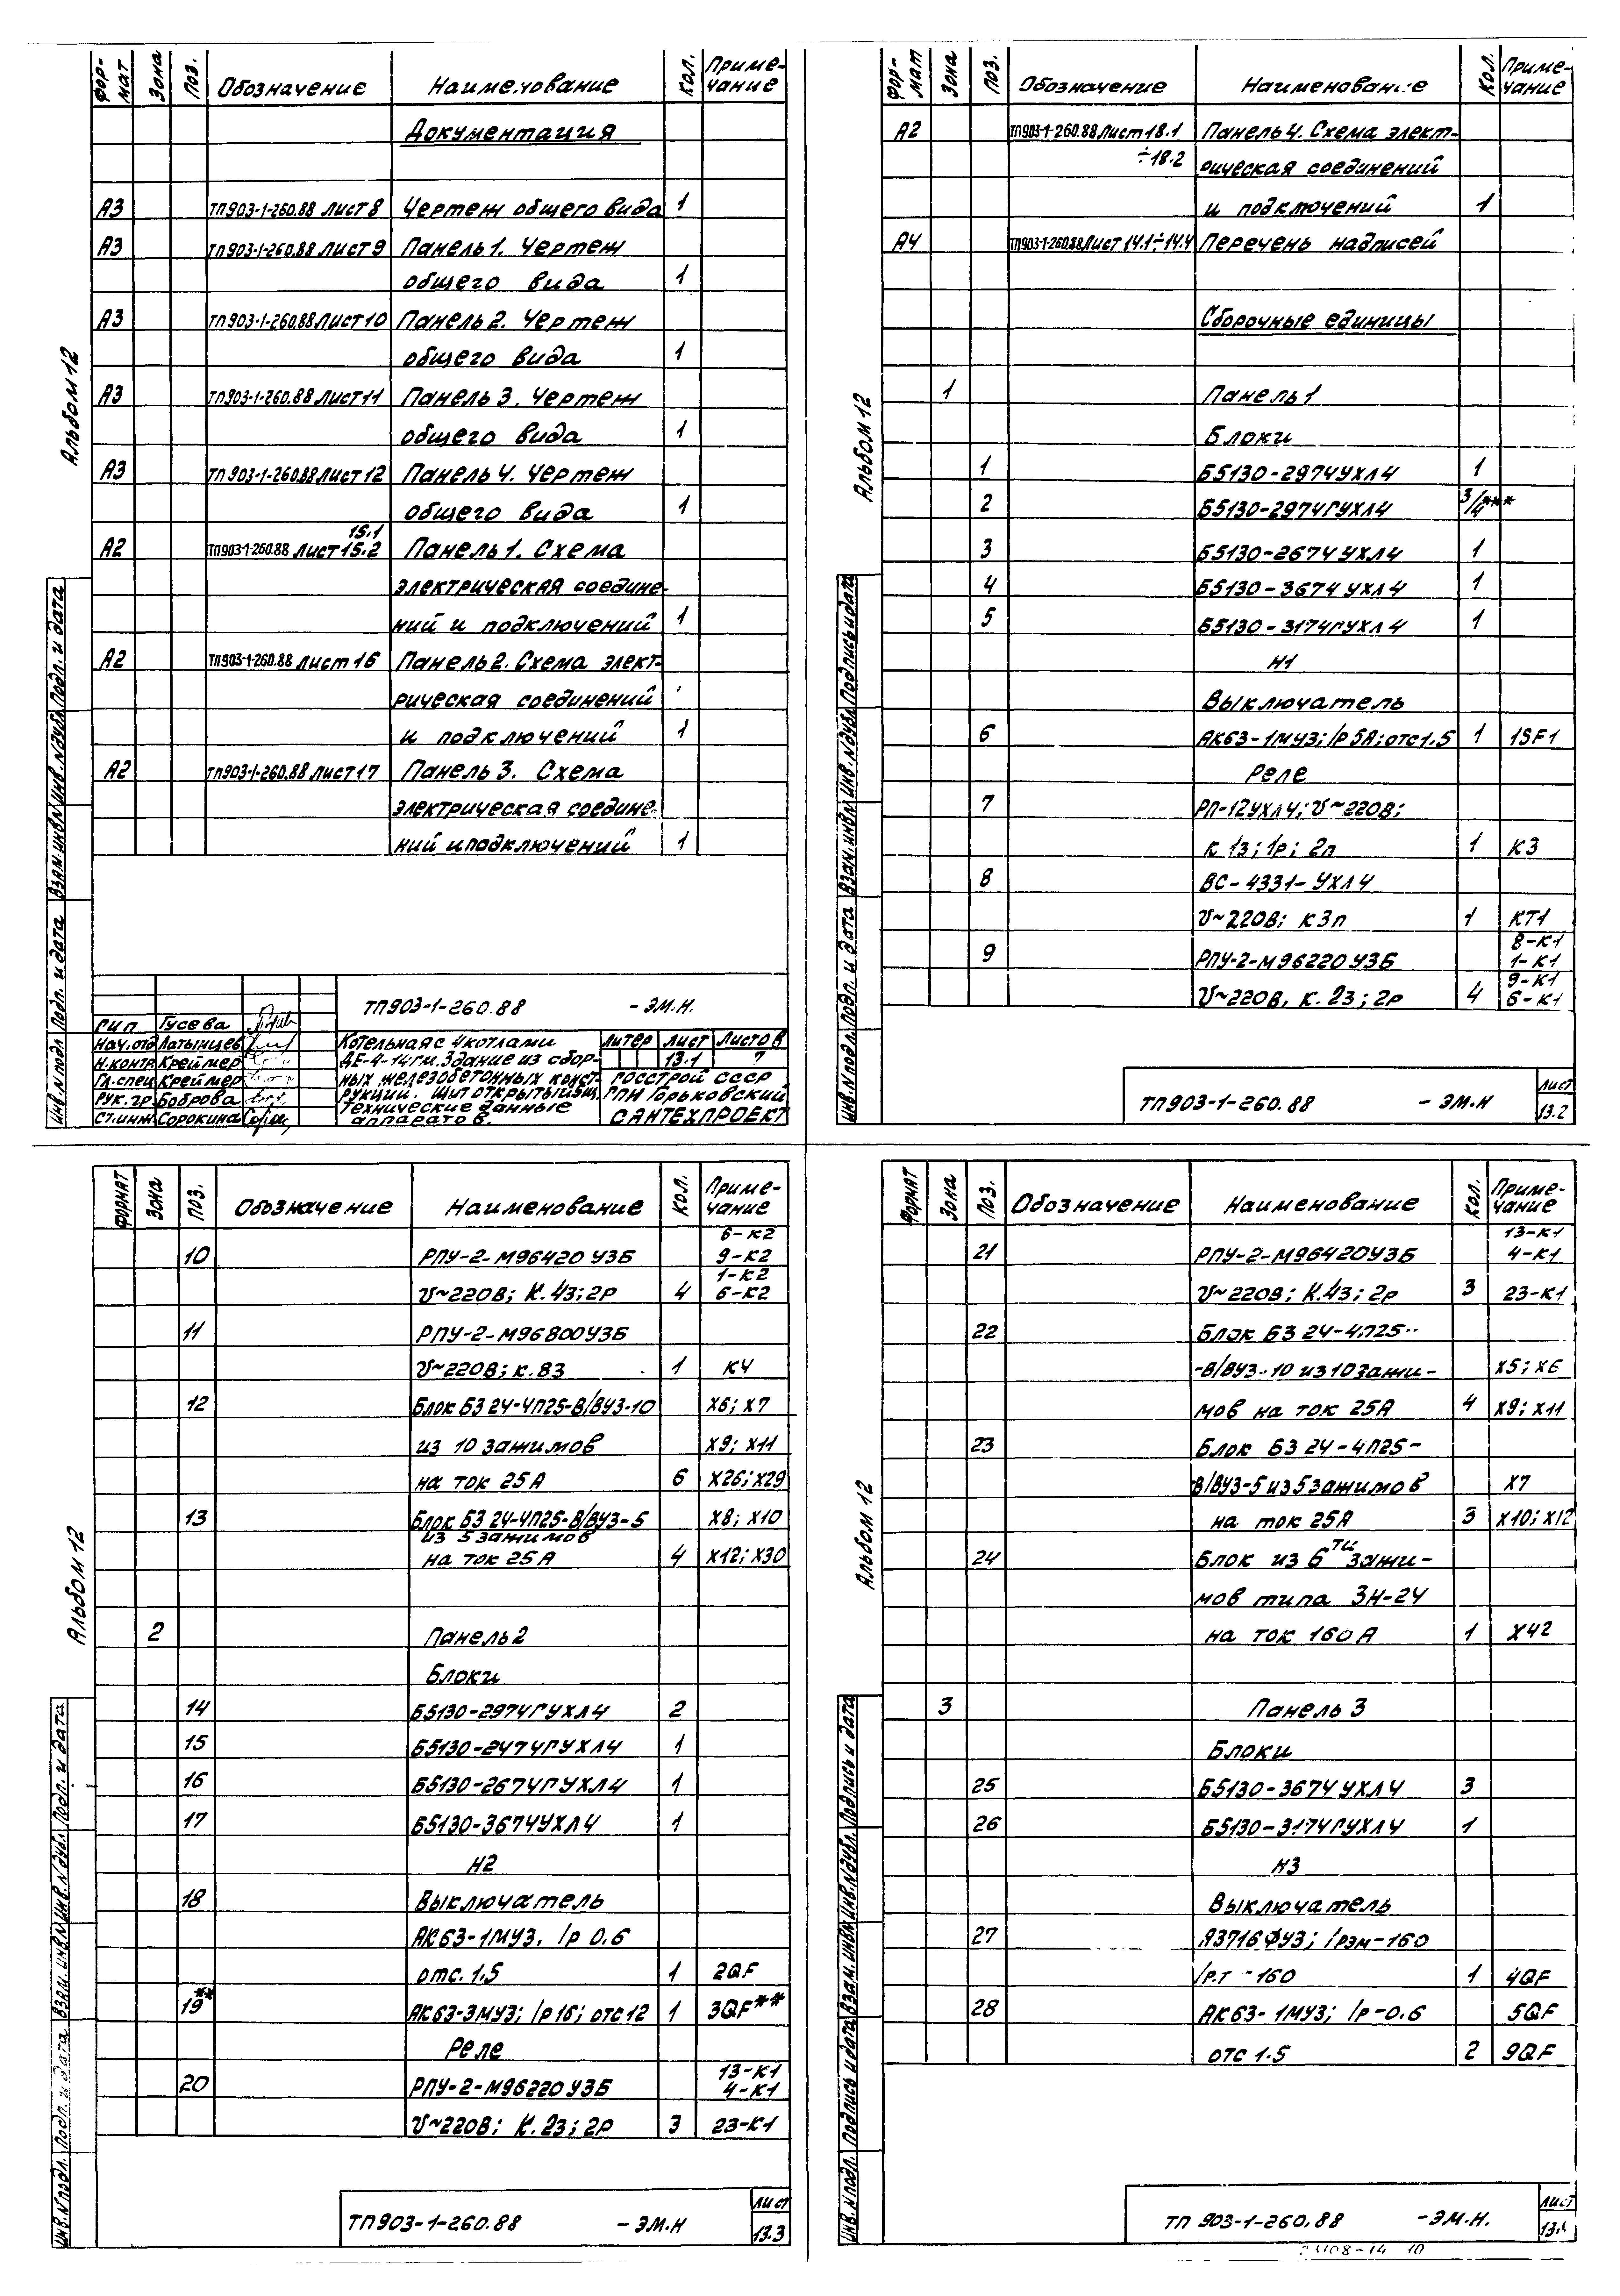 Фор-мат Зона Поз. Обозначение Наименование Кол. Приме-чание
Документация
А3 ТП903-1-260.88 лист 8 Чертеж общего вида 1
А3 ТП903-1-260.88 лист 9 Панель 1. Чертеж
общего вида 1
А3 ТП903-1-260.88 лист 10 Панель 2. Чертеж
общего вида 1
А3 ТП903-1-260.88 лист 11 Панель 3. Чертеж
общего вида 1
А3 ТП903-1-260.88 лист 12 Панель 4. Чертеж
общего вида 1
15.1
А2 ТП903-1-260.88 лист 15.2 Панель 1. Схема
электрическая соедине-
ний и подключений 1
А2 ТП903-1-260.88 лист 16 Панель 2. Схема элект-
рическая соединений
и подключений 1
А2 ТП903-1-260.88 лист 17 Панель 3. Схема
электрическая соедине-
ний и подключений 1
Альбом 12
Инв. N подл. Подп. и дата Взам. инв. N Инв. N дубл. Подп. и дата
ТП903-1-260.88 -ЭМ.Н.
ГИП Гусева
Нач. отд Латынцев
Н. контр Креймер
Гл. спец Креймер
Рук. гр. Боброва
Ст. инж Сорокина
Котельная с 4 котлами
ДЕ-4-14гм. Здание из сбор-
ных железобетонных конст-
рукций. Щит открытый 5щ.
Технические данные
аппаратов.
Литер Лист Листов
13.1 7
Госстрой СССР
ГПИ Горьковский
САНТЕХПРОЕКТ
Фор-мат Зона Поз. Обозначение Наименование Кол. Приме-чание
А2 ТП903-1-260.88 лист 18.1 Панель 4. Схема элект-
÷18.2 рическая соединений
и подключений 1
А4 ТП903-1-260.88 лист 14.1÷14.4 Перечень надписей
Сборочные единицы
1 Панель 1
Блоки
1 Б5130-2974УХЛ4 1
2 Б5130-2974ГУХЛ4 3/4***
3 Б5130-2674УХЛ4 1
4 Б5130-3674УХЛ4 1
5 Б5130-3174ГУХЛ4 1
Н1
Выключатель
6 АК63-1МУ3; Iр 5А; отс 1.5 1 1SF1
Реле
7 РП-12УХЛ4; U~220В;
к 1з; 1р; 2п 1 К3
8 ВС-4331-УХЛ4
U~220В; к 3п 1 КТ1
9 РПУ-2-М96220У3Б 8-К1 1-К1
U~220В, К. 2з; 2р 4 9-К1 6-К1
Альбом 12
Инв. N подл. Подп. и дата Взам. инв. N Инв. N дубл. Подпись и дата
ТП903-1-260.88 -ЭМ.Н
Лист
13.2
Формат Зона Поз. Обозначение Наименование Кол. Приме-чание
6-К2
10 РПУ-2-М96420У3Б 9-К2
1-К2
U~220В; К. 4з; 2р 4 6-К2
11 РПУ-2-М96800У3Б
U~220В; к. 8з 1 К4
12 Блок БЗ 24-4П25-В/ВУ3-10 Х6; Х7
из 10 зажимов Х9; Х11
на ток 25А 6 Х26; Х29
13 Блок БЗ 24-4П25-В/ВУ3-5 Х8; Х10
из 5 зажимов
на ток 25А 4 Х12; Х30
2 Панель 2
Блоки
14 Б5130-2974ГУХЛ4 2
15 Б5130-2474ГУХЛ4 1
16 Б5130-2674ГУХЛ4 1
17 Б5130-3674УХЛ4 1
Н2
18 Выключатель
АК63-1МУ3. Iр 0.6
отс. 1.5 1 2QF
19** АК63-3МУ3; Iр 16; отс 12 1 3QF**
Реле
20 РПУ-2-М96220У3Б 13-К1 4-К1
U~220В; К. 2з; 2р 3 23-К1
Альбом 12
Инв. N подл. Подп. и дата Взам. инв. N Инв. N дубл. Подп. и дата
ТП903-1-260.88 -ЭМ.Н
Лист
13.3
Формат Зона Поз. Обозначение Наименование Кол. Приме-чание
13-К1
21 РПУ-2-М96420У3Б 4-К1
U~220В; К. 4з; 2р 3 23-К1
22 Блок БЗ 24-4П25-
-В/ВУ3-10 из 10 зажи- Х5; Х6
мов на ток 25А 4 Х9; Х11
23 Блок БЗ 24-4П25-
В/ВУ3-5 из 5 зажимов Х7
на ток 25А 3 Х10; Х12
24 Блок из 6ти зажи-
мов типа ЗН-24
на ток 160А 1 Х42
3 Панель 3
Блоки
25 Б5130-3674УХЛ4 3
26 Б5130-3174ГУХЛ4 1
Н3
Выключатель
27 А3716ФУ3; Iрэм-160
Iр.т-160 1 4QF
28 АК63-1МУ3; Iр-0.6 5QF
отс 1.5 2 9QF
Альбом 12
Инв. N подл. Подпись и дата Взам. инв. N Инв. N дубл. Подпись и дата
ТП 903-1-260.88 -ЭМ.Н.
Лист
23108-14 10